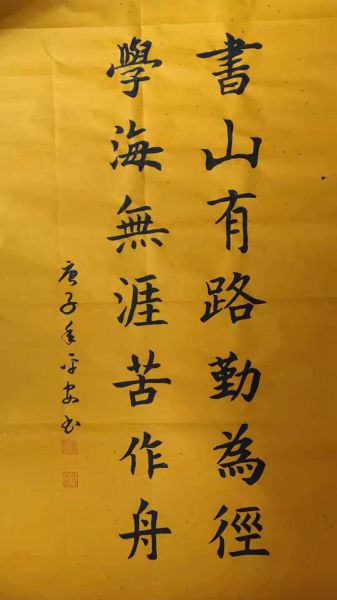 書山有路勤為徑
學海無涯苦作舟
庚子冬平安書